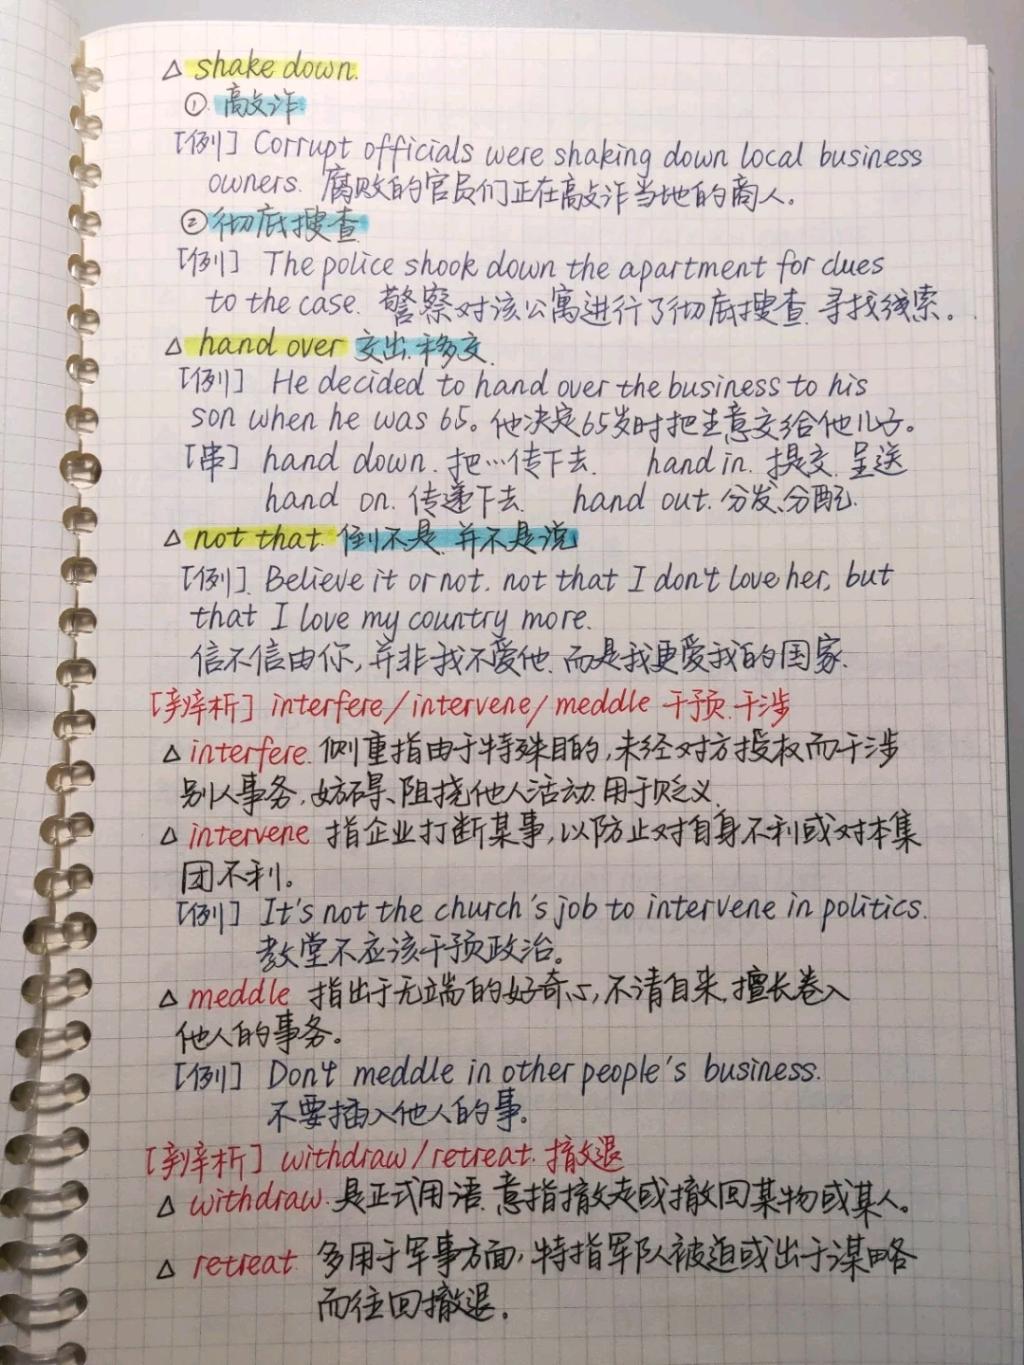 △ shake down.
① 敲诈
[例] Corrupt officials were shaking down local business
owners. 腐败的官员们正在敲诈当地的商人。
② 彻底搜查
[例] The police shook down the apartment for clues
to the case. 警察对该公寓进行了彻底搜查. 寻找线索。
△ hand over 交出.移交.
[例] He decided to hand over the business to his
son when he was 65。他决定65岁时把生意交给他儿子。
[串] hand down. 把…传下去. hand in. 提交. 呈送
hand on. 传递下去 hand out. 分发、分配.
△ not that. 倒不是. 并不是说
[例]. Believe it or not. not that I don't love her, but
that I love my country more.
信不信由你, 并非我不爱他. 而是我更爱我的国家.
[辨析] interfere/intervene/meddle 干预.干涉
△ interfere. 侧重指由于特殊目的,未经对方授权而干涉
别人事务.妨碍、阻挠他人活动.用于贬义.
△ intervene 指企业打断某事,以防止对自身不利或对本集
团不利。
[例] It's not the church's job to intervene in politics.
教堂不应该干预政治。
△ meddle 指出于无端的好奇心,不请自来.擅长卷入
他人的事务。
[例] Don't meddle in other people's business.
不要插入他人的事。
[辨析] withdraw/retreat. 撤退
△ withdraw. 是正式用语. 意指撤走或撤回某物或某人。
△ retreat. 多用于军事方面, 特指军队被迫或出于谋略
而往回撤退。